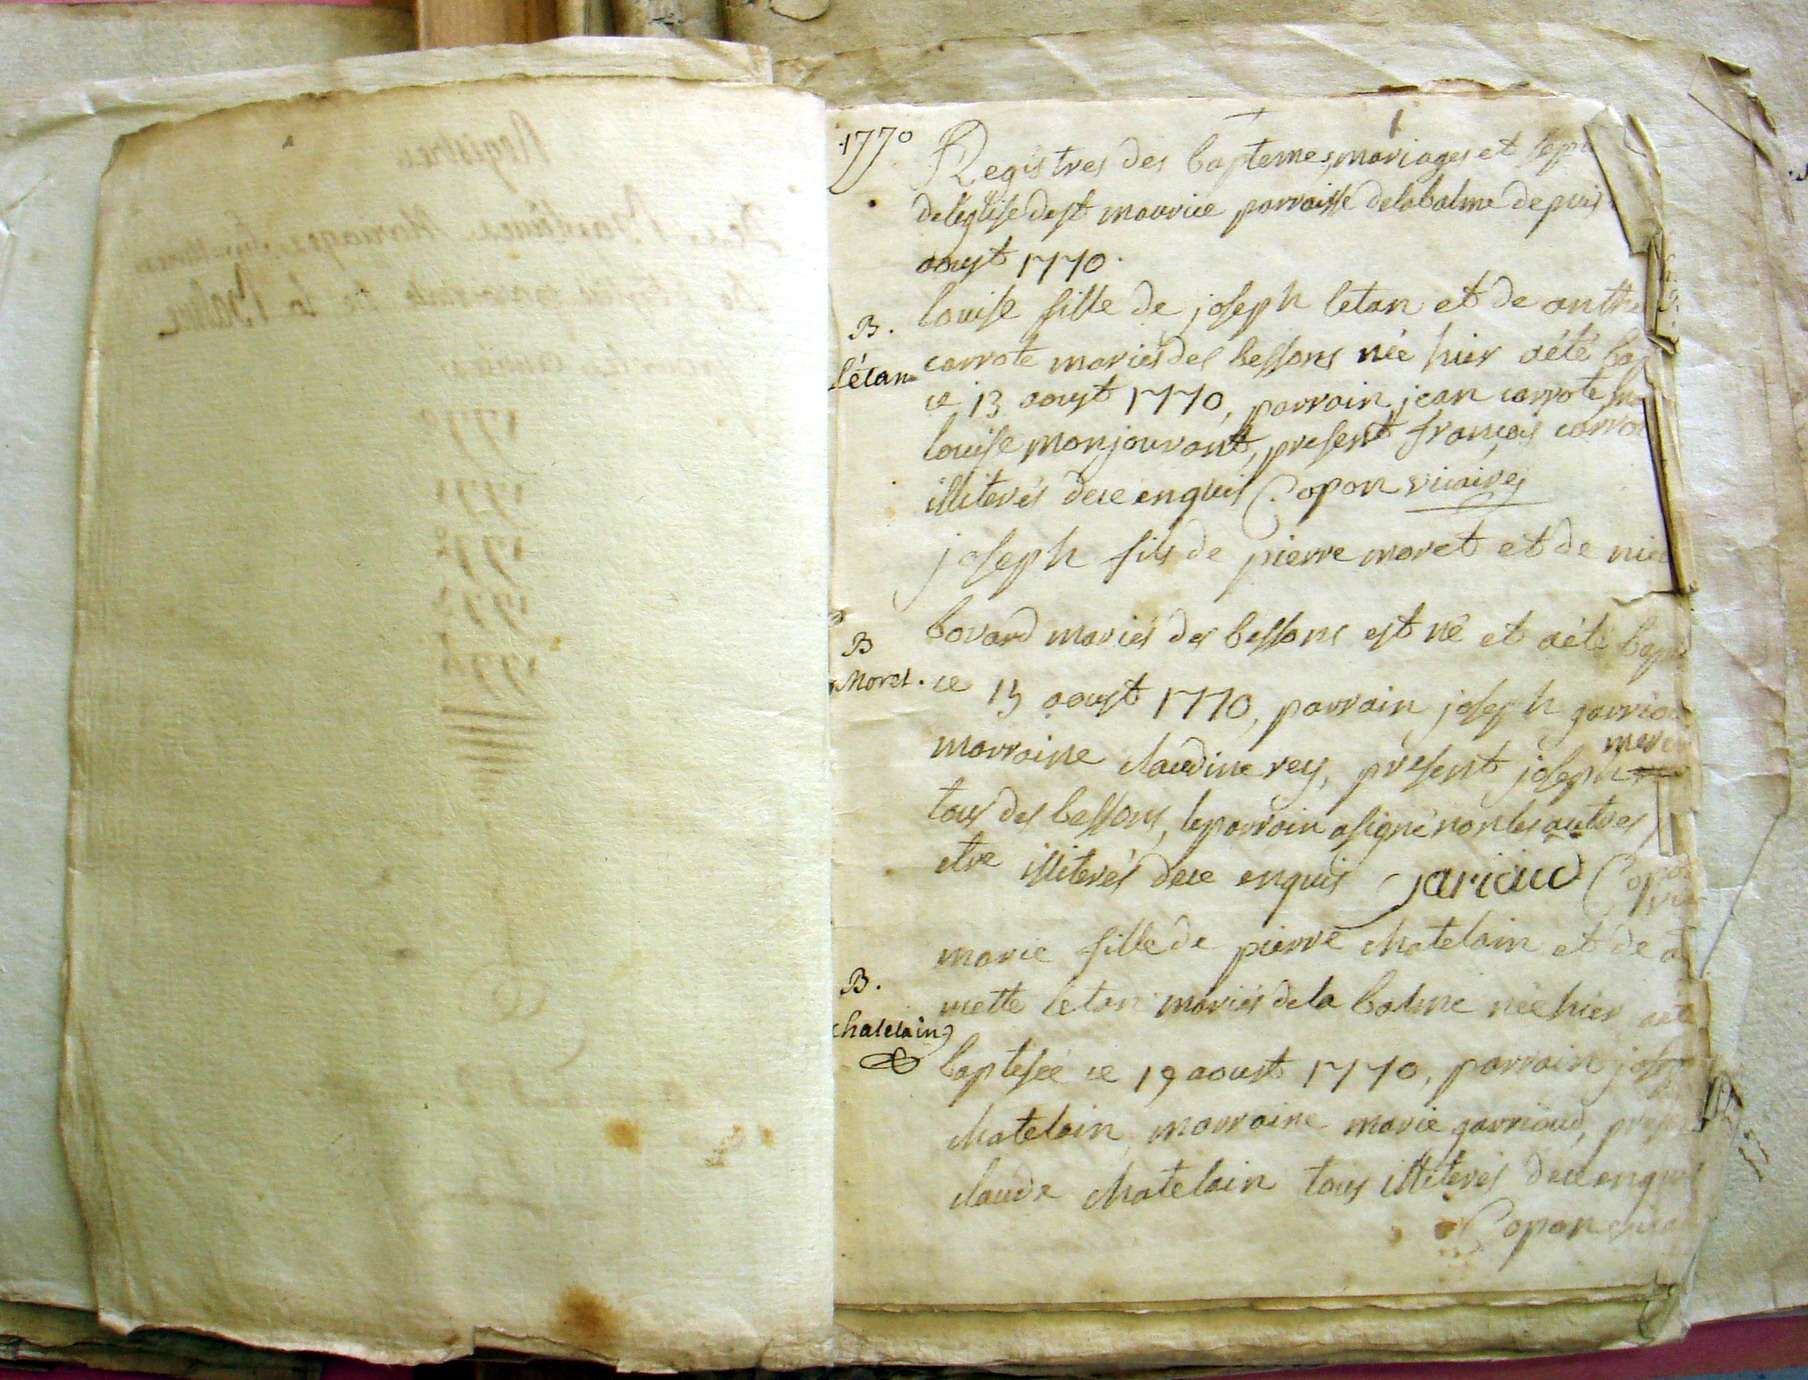 1770
Registres des baptemes, mariages et sepu
deleglise de st maurice parroisse delabalme depuis
aoust 1770.
B.
létan
louise fille de joseph letan et de anthe
carrote mariés des bessons née hier aété bap
ce 13 aoust 1770, parrain jean carrote
louise monjouvant, present françois carro
illiterés dece enquis Copon vicaire
joseph fils de pierre moret et de
B
Moret.
bovard mariés des bessons est né et aété bapt
ce 13 aoust 1770, parrain joseph garrio
marraine claudine rey, present joseph
mer
tous des bessons, leparrain asigné non les autres
etre illiterés dece enquis jariaud Copon
marie fille de pierre chatelain et de
B.
chatelain
mette letan mariés dela balme née hier aété
baptisée ce 19 aoust 1770, parrain jose
chatelain, marraine marie garrioud, prese
claude chatelain tous illiterés dece enquis
Copon vicai
Registres
Des Baptêmes Mariages
De la Balme
1770
1771
1772
1773
1774